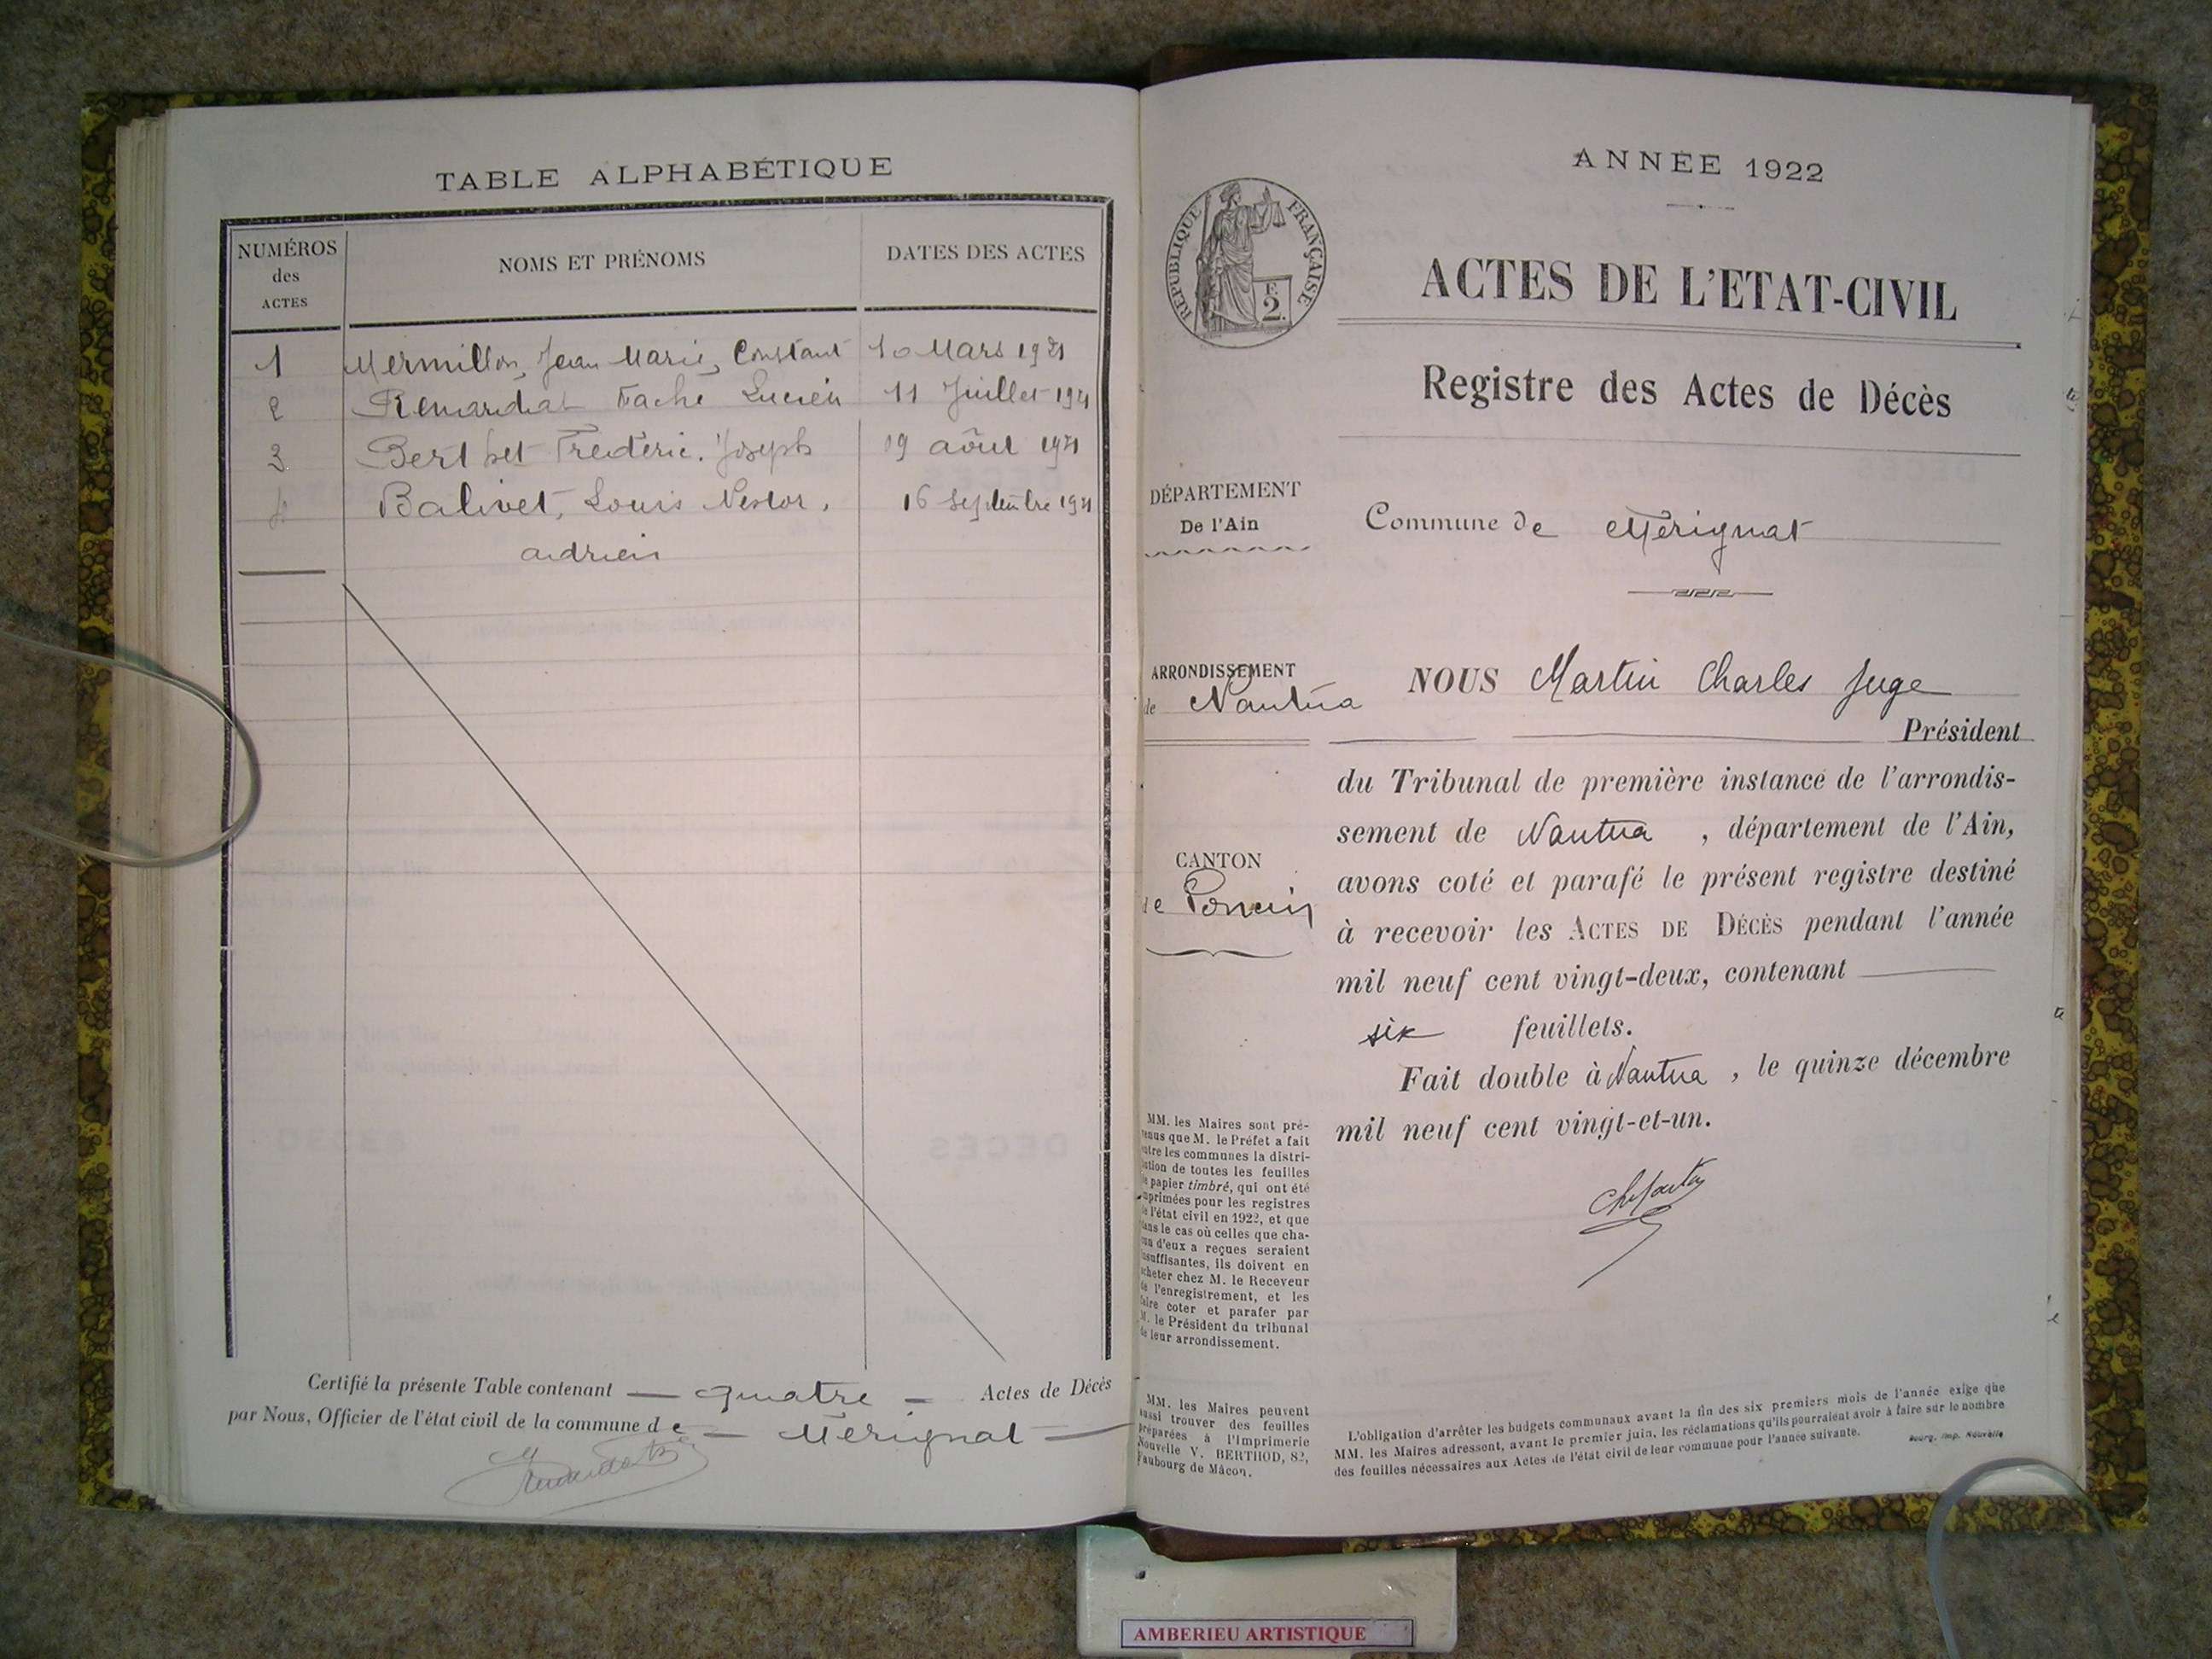 TABLE ALPHABÉTIQUE
NUMÉROS
des
ACTES
NOMS ET PRÉNOMS
DATES DES ACTES
1 Mermillon, Jean Marie, Constant 10 Mars 1921
2 Lucien 11 Juillet 1921
3 Berthet Frédéric. Joseph 19 aôut 1921
4 Balivet, Louis Nestor, 16 Septembre 1921
adrien
Certifié la présente Table contenant — quatre — Actes de Décès
par Nous, Officier de l'état civil de la commune de — Mérignat —
ANNÉE 1922
RÉPUBLIQUE FRANÇAISE
2 F.
ACTES DE L'ETAT-CIVIL
Registre des Actes de Décès
DÉPARTEMENT
De l'Ain
Commune de Mérignat
ARRONDISSEMENT
de Nantua
NOUS Martin Charles Juge
Président
du Tribunal de première instance de l'arrondis-
sement de Nantua , département de l'Ain,
avons coté et parafé le présent registre destiné
à recevoir les ACTES DE DÉCÈS pendant l'année
mil neuf cent vingt-deux, contenant
six feuillets.
Fait double à Nantua , le quinze décembre
mil neuf cent vingt-et-un.
CANTON
de Poncin
MM. les Maires sont pré-
venus que M. le Préfet a fait
entre les communes la distri-
bution de toutes les feuilles
de papier timbré, qui ont été
imprimées pour les registres
de l'état civil en 1922, et que
dans le cas où celles que cha-
cun d'eux a reçues seraient
insuffisantes, ils doivent en
acheter chez M. le Receveur
de l'enregistrement, et les
faire coter et parafer par
M. le Président du tribunal
de leur arrondissement.
MM. les Maires peuvent
aussi trouver des feuilles
préparées à l'Imprimerie
Nouvelle V. BERTHOD, 82,
Faubourg de Mâcon.
L'obligation d'arrêter les budgets communaux avant la fin des six premiers mois de l'année exige que
MM. les Maires adressent, avant le premier juin, les réclamations qu'ils pourraient avoir à faire sur le nombre
des feuilles nécessaires aux Actes de l'état civil de leur commune pour l'année suivante.
Bourg, Imp. Nouvelle
AMBERIEU ARTISTIQUE